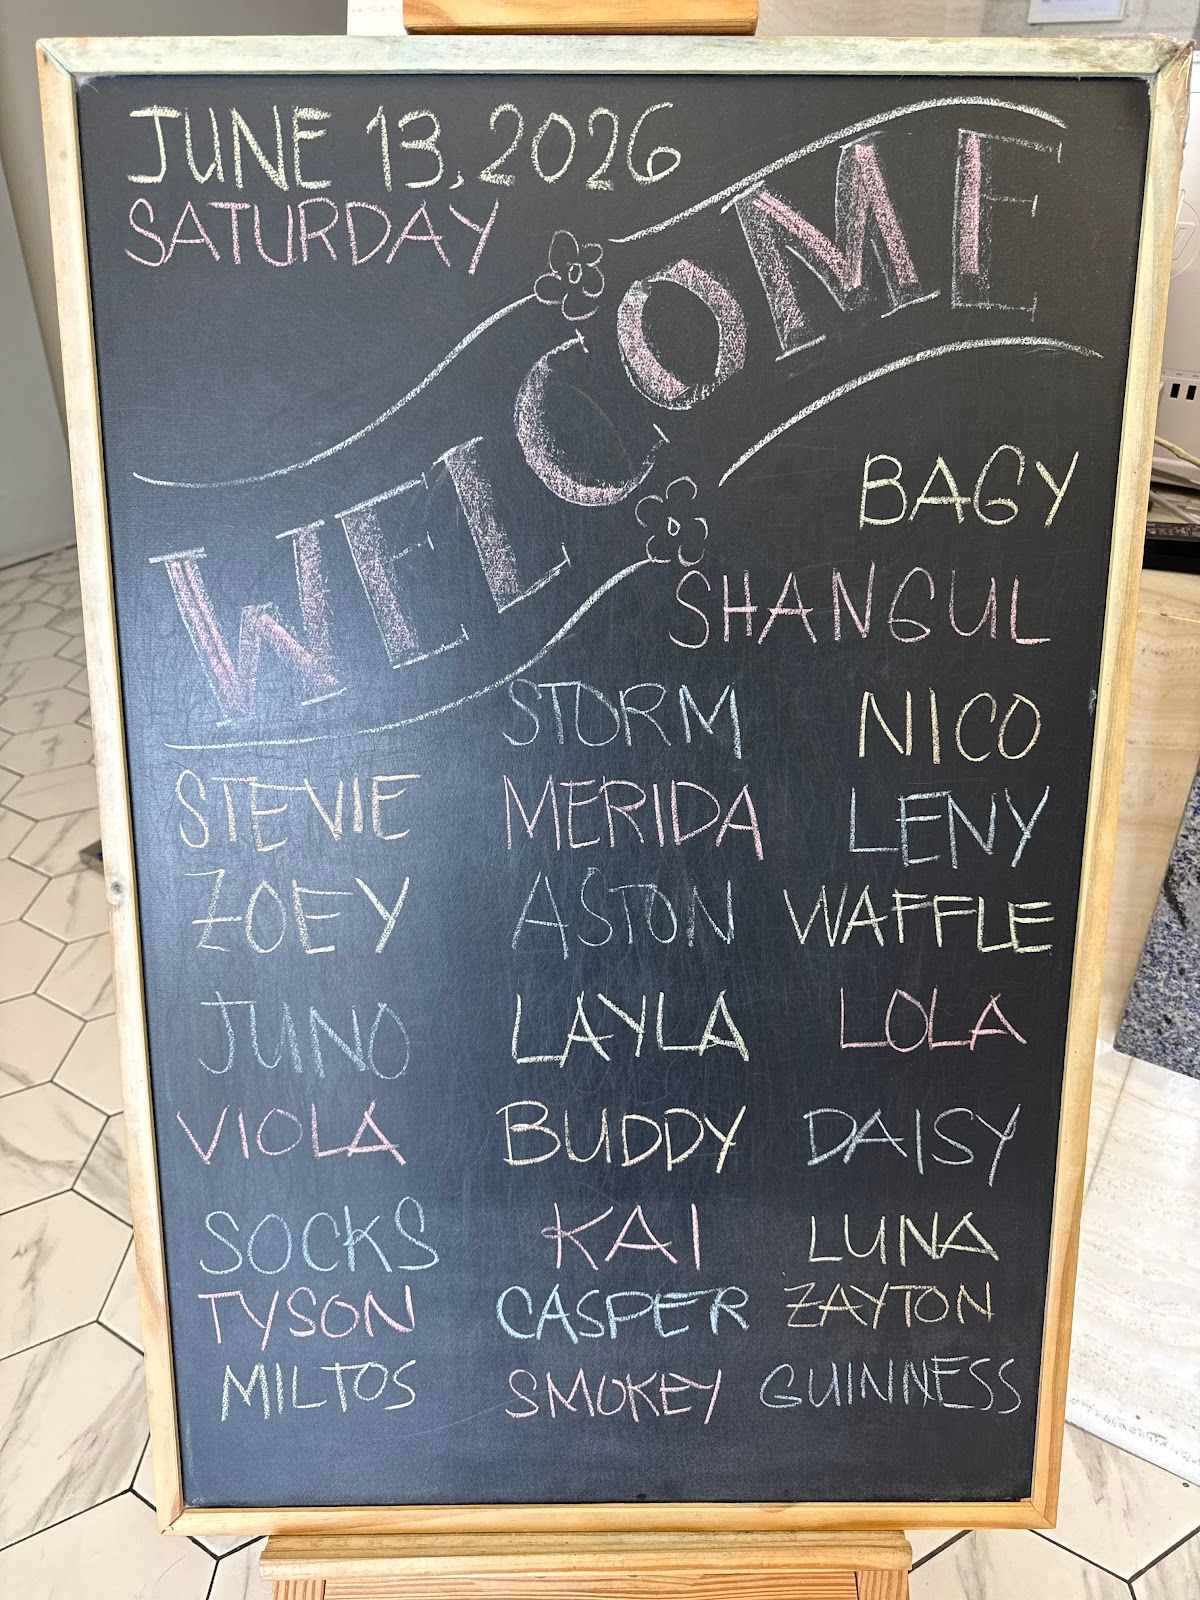 JUNE 13, 2026
SATURDAY
WELCOME
BAGY
SHANGUL
STORM NICO
STEVIE MERIDA LENY
ZOEY ASTON WAFFLE
JUNO LAYLA LOLA
VIOLA BUDDY DAISY
SOCKS KAI LUNA
TYSON CASPER ZAYTON
MILTOS SMOKEY GUINNESS